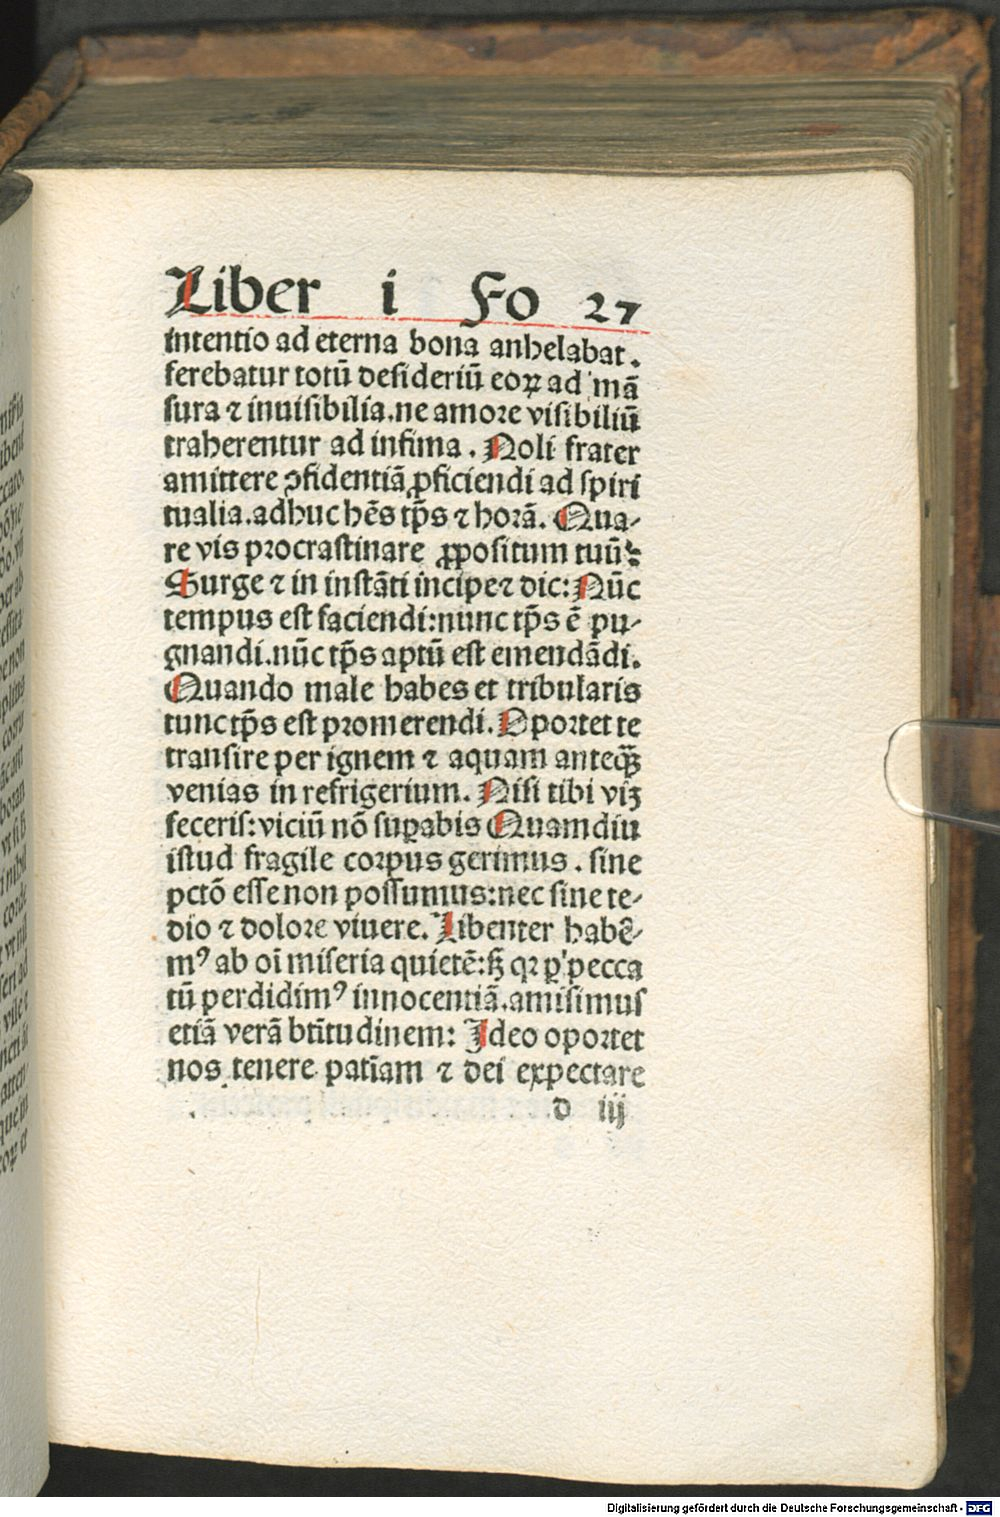 Liber i Fo 27
intentio ad eterna bona anhelabat.
ferebatur totū desideriū eoꝝ ad mā
sura ⁊ inuisibilia.ne amore visibiliū
traherentur ad infima. Noli frater
amittere ꝯfidentiā ꝓficiendi ad spiri
tualia.adhuc hēs tp̄s ⁊ horā. Qua-
re vis procrastinare ꝓpositum tuū?
Surge ⁊ in instāti incipe⁊ dic: Nūc
tempus est faciendi:nunc tp̄s ē pu-
gnandi.nūc tp̄s aptū est emendādi.
Quando male habes et tribularis
tunc tp̄s est promerendi. Oportet te
transire per ignem ⁊ aquam anteqꝫ̄
venias in refrigerium. Nisi tibi viꝫ
feceris: viciū nō suꝑabis Quamdiu
istud fragile corpus gerimus. sine
pctō esse non possumus:nec sine te-
dio ⁊ dolore viuere. Libenter habē-
mꝰ ab oī miseria quietē:sꝫ qꝛ ꝑ pecca
tū perdidimꝰ innocentiā.amisimus
etiā verā btītudinem: Ideo oportet
nos tenere patīam ⁊ dei expectare
d iij
Digitalisierung gefördert durch die Deutsche Forschungsgemeinschaft - DFG